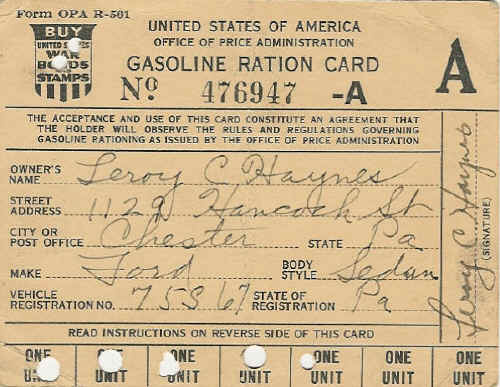 Form OPA R-501
UNITED STATES OF AMERICA
OFFICE OF PRICE ADMINISTRATION
GASOLINE RATION CARD
Nº 476947 -A
A
BUY
UNITED STATES
WAR
BONDS
AND
STAMPS
THE ACCEPTANCE AND USE OF THIS CARD CONSTITUTE AN AGREEMENT THAT
THE HOLDER WILL OBSERVE THE RULES AND REGULATIONS GOVERNING
GASOLINE RATIONING AS ISSUED BY THE OFFICE OF PRICE ADMINISTRATION
OWNER'S
NAME Leroy C Haynes
STREET
ADDRESS 1129 Hancock St
CITY OR
POST OFFICE Chester STATE Pa
MAKE Ford BODY
STYLE Sedan
VEHICLE
REGISTRATION NO. 75S67 STATE OF
REGISTRATION Pa
Leroy C Haynes
(SIGNATURE)
READ INSTRUCTIONS ON REVERSE SIDE OF THIS CARD
ONE ONE ONE ONE ONE ONE
UNIT UNIT UNIT UNIT UNIT UNIT